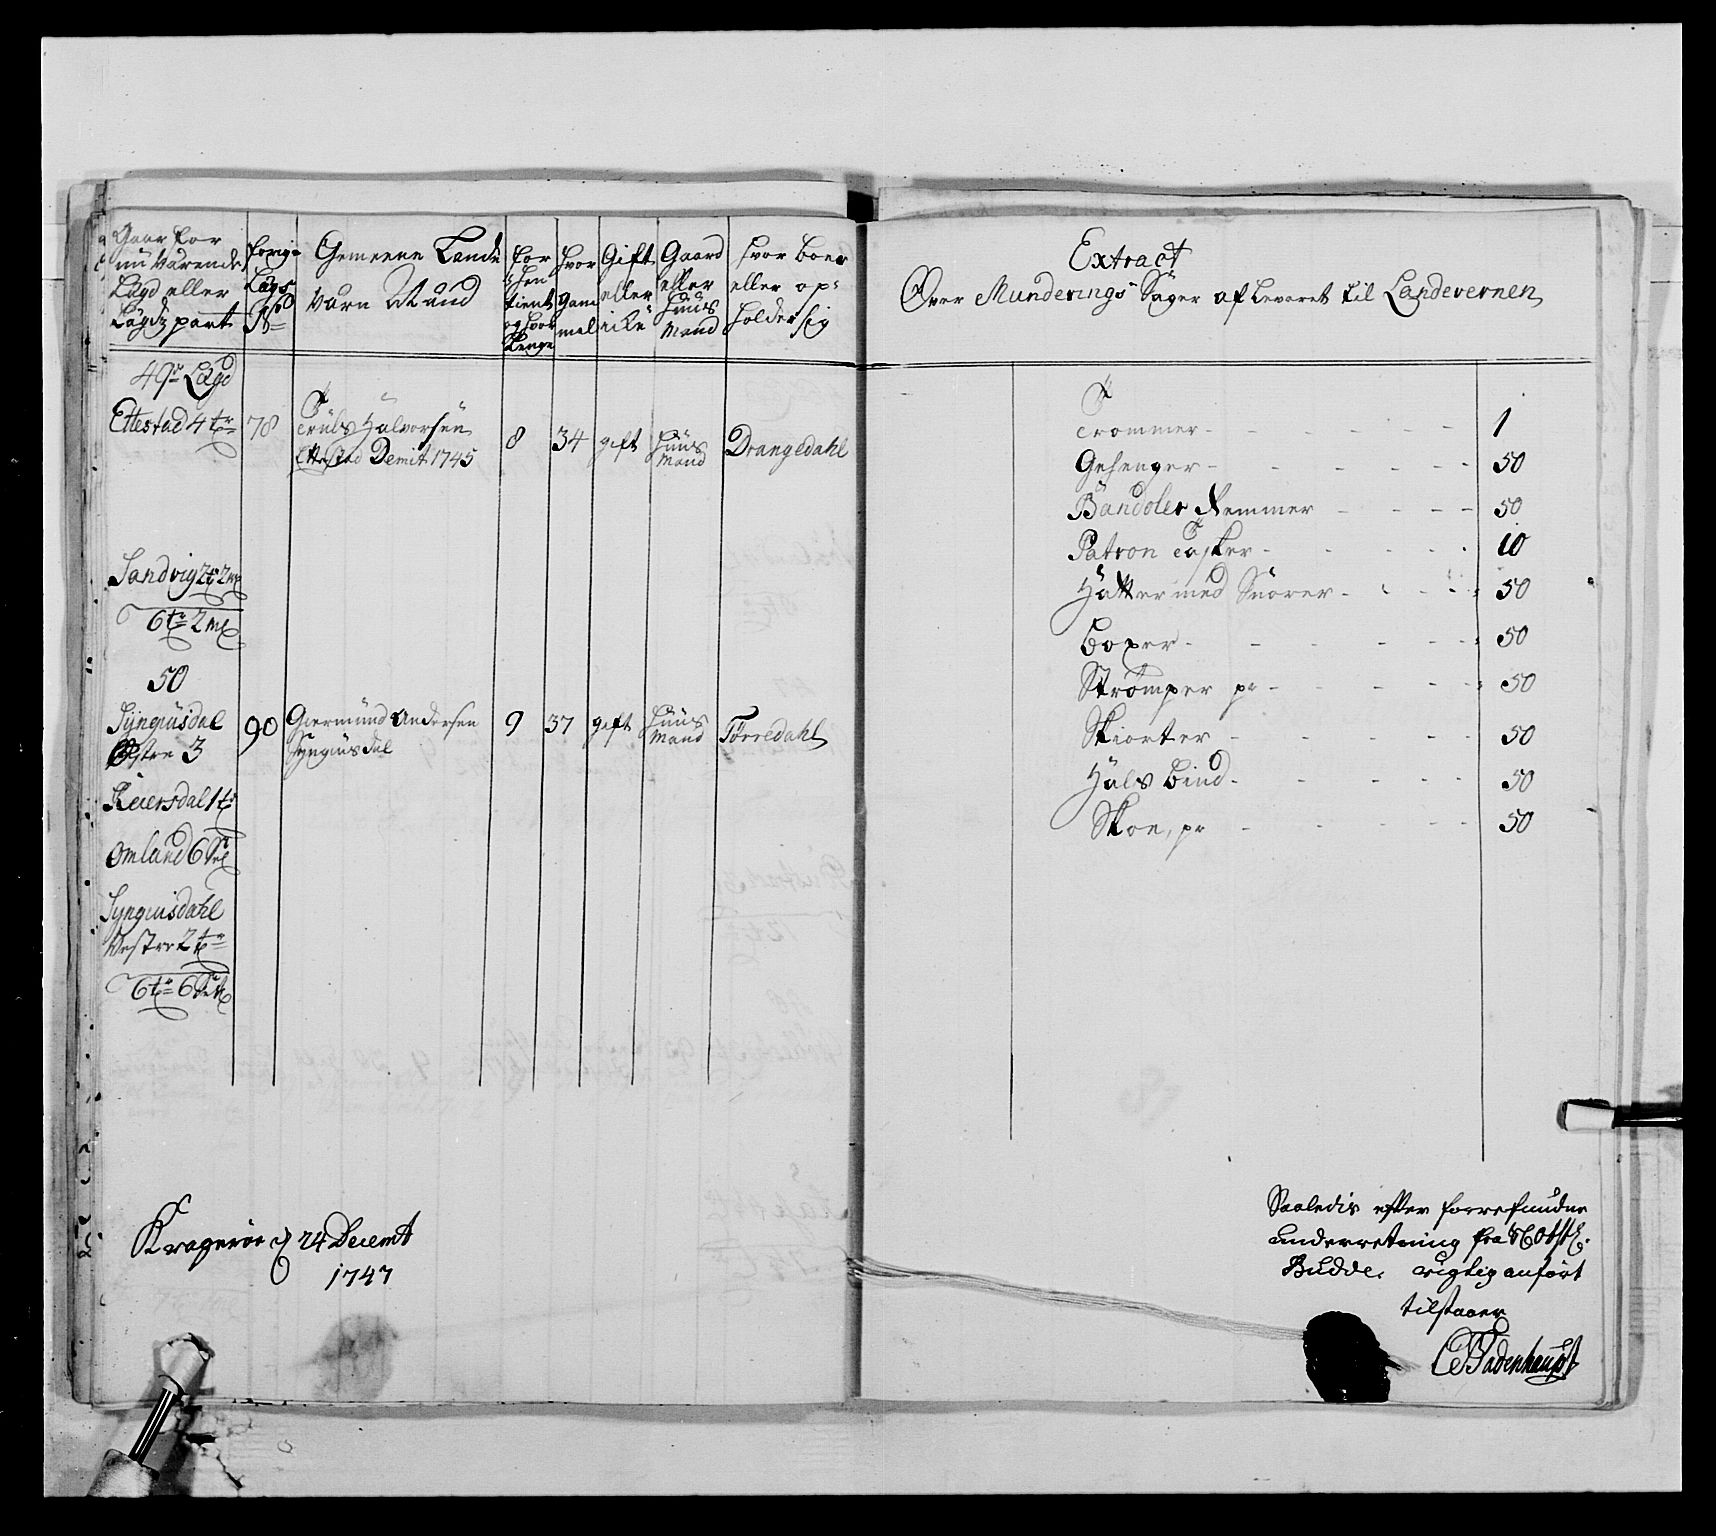 Gaar for
nu værende
Lægd eller
Lægdz part
forige
Lægs
No
Gemeene Lande
værn Mænd
for
hen
tient
og hvor
lenge
hvor
gam
mel
Gift
eller
icke
Gaard
eller
Huus
Mand
hvor boer
eller op-
holder sig
49de Lægd
Ettestad 4 tr
78
Truls Halvorsen
Ettestad Demit 1745
8
34
gift
Huus
Mand
Drangedahl
Sandvig 2 tr 2 mk
6 tr 2 mk
50
Syngiusdal
Østre 3
90
Giermund Andersen
Syngiusdal
9
37
gift
Huus
Mand
Tørredahl
Keiersdal 1 tr
Omland 6
Syngiusdahl
Westre 2 tr
6 tr 6
Kragerøe d 24 Decembr
1747
Extract
Over Munderings Sager afleveret til Landevernen
Trommer 1
Gehenger 50
Bandoler Remmer 50
Patron Tasker 10
Hatter med Snorer 50
Boxer 50
Strømper pr 50
Skiorter 50
Hals Bind 50
Skoe, pr 50
Saaledis efter forrefundne
underretning fra
Budde, rigtig anført
tilstaaer
Badenhaupt